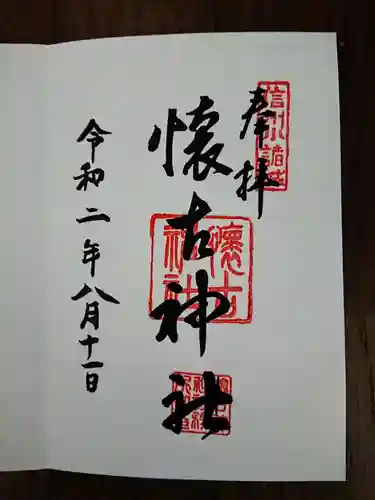 奉拝
懐古神社
令和二年八月十一日
懐古
神社